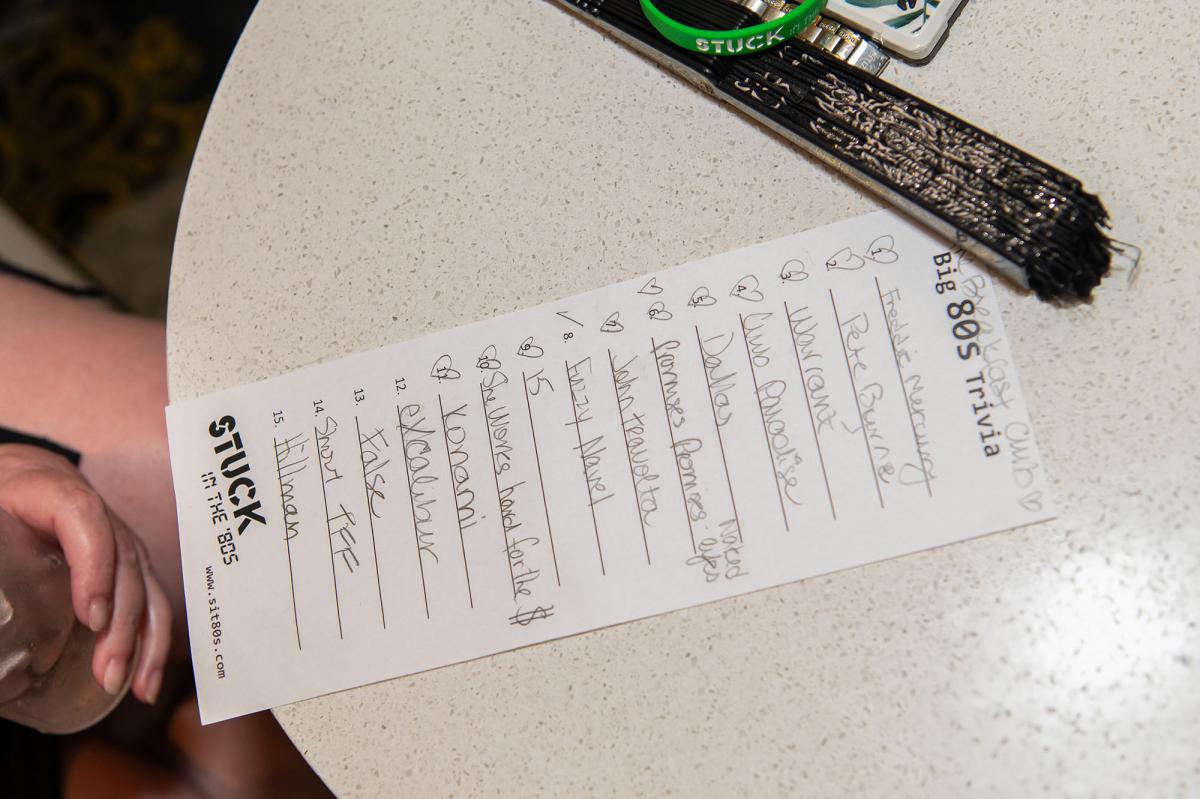 STUCK IN THE
Breakfast Club ♡
Big 80s Trivia
1. Freddie Mercury
2. Pete Burne
3. Warrant
4. Club Paradise
5. Dallas
6. Promises Promises - Naked eyes
7. John Travolta
8. Fuzzy Navel
9. 15
10. She Works hard for the $
11. Konami
12. eXcalibur
13. False
14. Snort Pff
15. Hillman
STUCK
IN THE '80S
www.sit80s.com